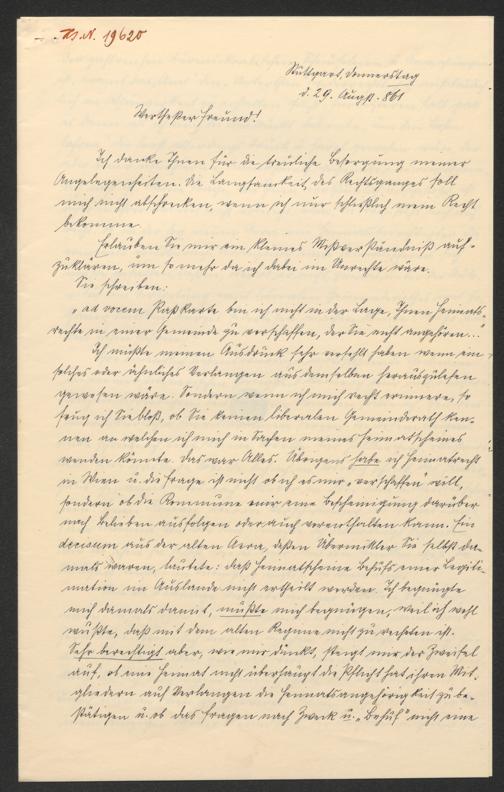 H.I.N. 19620
Stuttgart, Donnerstag
d. 29. Augst. 861
Werthester Freund!
Ich danke Ihnen für die freundliche Besorgung meiner
Angelegenheiten. Die Langsamkeit des Rechtsganges soll
mich nicht abschrecken, wenn ich nur schließlich mein Recht
bekomme.
Erlauben Sie mir ein kleines Mißverständniß auf-
zuklären, um so mehr da ich dabei im Unrechte wäre.
Sie schreiben:
„ad vocem Paßkarte bin ich nicht in der Lage, Ihnen Heimats-
rechte in einer Gemeinde zu verschaffen, der Sie nicht angehören..."
Ich müßte meinen Ausdruck sehr verfehlt haben wenn ein
solches oder ähnliches Verlangen aus demselben herauszulesen
gewesen wäre. Sondern wenn ich mich recht erinnere, so
frug ich Sie bloß, ob Sie keinen liberalen Gemeinderath ken-
nen an welchen ich mich in Sachen meines Heimatscheines
wenden könnte. Das war Alles. Übrigens habe ich Heimatrecht
in Wien u. die Frage ist nicht ob ich es mir „verschaffen" will,
sondern ob die Kommune mir eine Bescheinigung darüber
nach Belieben ausfolgen oder auch verenthalten kann. Ein
decisum aus der alten Aera, deßen Übermittler Sie selbst da-
mals waren, lautete: daß Heimatscheine behufs einer Legiti-
mation im Auslande nicht ertheilt werden. Ich begnügte
mich damals damit, mußte mich begnügen, weil ich wohl
wußte, daß mit dem alten Regime nicht zu rechten ist.
Sehr berechtigt aber, wie mir dünkt, steigt mir der Zweifel
auf, ob eine Heimat nicht überhaupt die Pflicht hat ihren Mit-
gliedern auf Verlangen die Heimatsangehörigkeit zu be-
stätigen u. ob das Fragen nach Zweck u. „Behuf" nicht eine